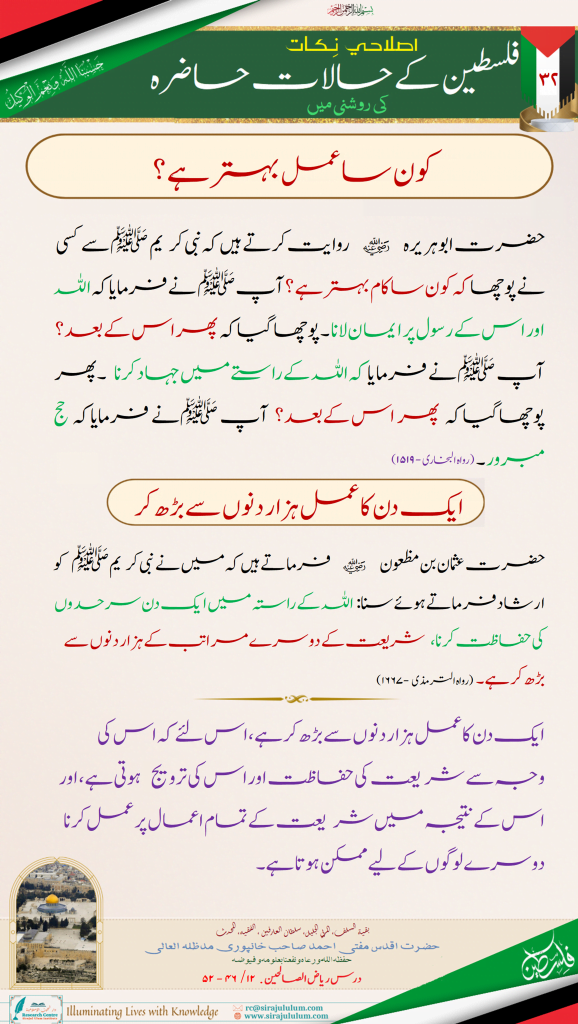 بسم اللہ الرحمن الرحیم
اصلاحی نکات
فلسطین کے حالات حاضرہ
کی روشنی میں
۳۲
حَسْبُنَا اللّٰهُ وَنِعْمَ الْوَكِيْل
کون سا عمل بہتر ہے؟
حضرت ابو ہریرہ رضی اللہ عنہ روایت کرتے ہیں کہ نبی کریم ﷺ سے کسی
نے پوچھا کہ کون سا کام بہتر ہے؟ آپ ﷺ نے فرمایا کہ اللہ
اور اس کے رسول پر ایمان لانا۔ پوچھا گیا کہ پھر اس کے بعد؟
آپ ﷺ نے فرمایا کہ اللہ کے راستے میں جہاد کرنا ۔ پھر
پوچھا گیا کہ پھر اس کے بعد؟ آپ ﷺ نے فرمایا کہ حج
مبرور۔ (رواہ البخاری - ۱۵۱۹)
ایک دن کا عمل ہزار دنوں سے بڑھ کر
حضرت عثمان بن مظعون رضی اللہ عنہ فرماتے ہیں کہ میں نے نبی کریم ﷺ کو
ارشاد فرماتے ہوئے سنا: اللہ کے راستہ میں ایک دن سرحدوں
کی حفاظت کرنا، شریعت کے دوسرے مراتب کے ہزار دنوں سے
بڑھ کر ہے۔ (رواہ الترمذی - ۱۶۶۷)
ایک دن کا عمل ہزار دنوں سے بڑھ کر ہے، اس لئے کہ اس کی
وجہ سے شریعت کی حفاظت اور اس کی ترویج ہوتی ہے، اور
اس کے نتیجہ میں شریعت کے تمام اعمال پر عمل کرنا
دوسرے لوگوں کے لیے ممکن ہوتا ہے۔
حضرت اقدس مفتی احمد صاحب خانپوری مدظلہ العالی
حفظہ اللہ ورعاہ ونفعنا بعلومہ وفیوضہ
درس ریاض الصالحین، ۱۲/ ۴۶ - ۵۲
فلسطین
Research Centre
Illuminating Lives with Knowledge
rc@sirajululum.com
www.sirajululum.com